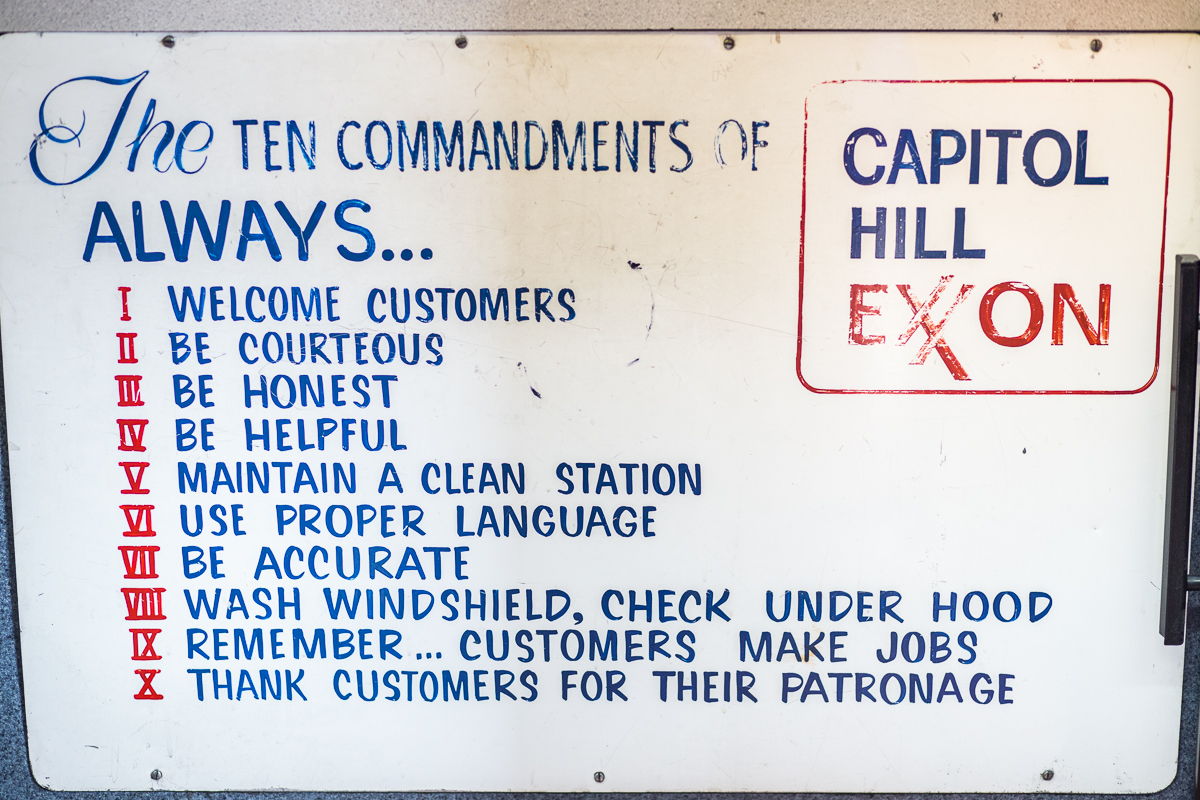 The TEN COMMANDMENTS OF
CAPITOL
HILL
EXXON
ALWAYS...
I WELCOME CUSTOMERS
II BE COURTEOUS
III BE HONEST
IV BE HELPFUL
V MAINTAIN A CLEAN STATION
VI USE PROPER LANGUAGE
VII BE ACCURATE
VIII WASH WINDSHIELD, CHECK UNDER HOOD
IX REMEMBER... CUSTOMERS MAKE JOBS
X THANK CUSTOMERS FOR THEIR PATRONAGE